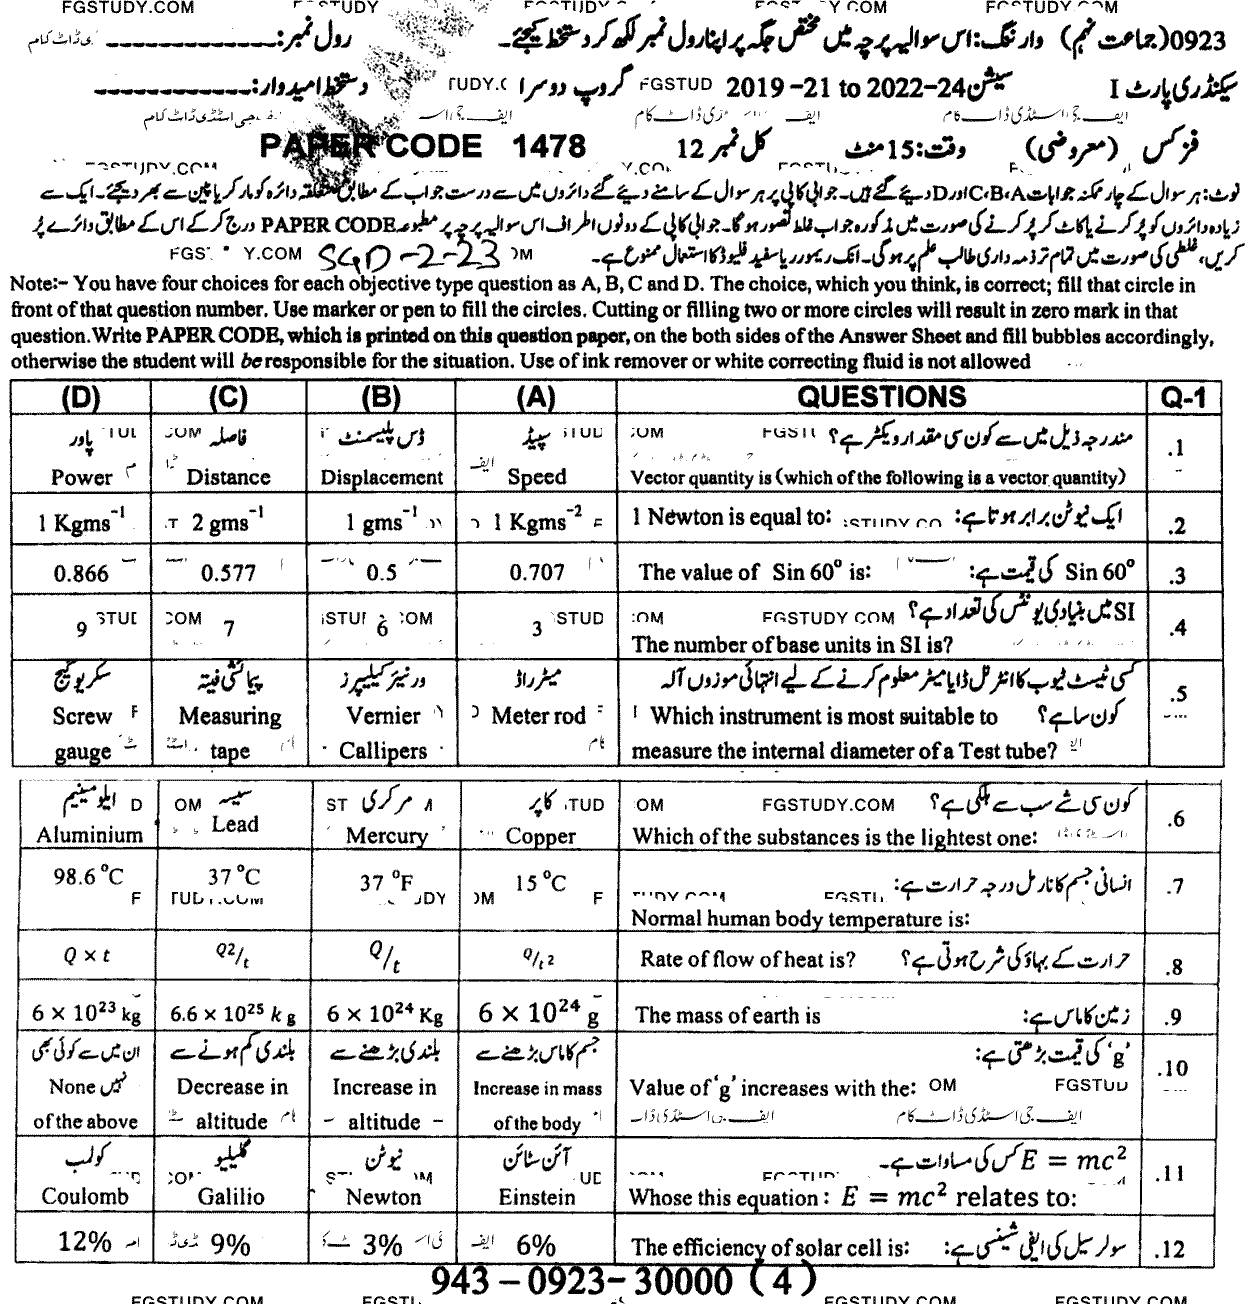 FGSTUDY.COM
0923(جماعت نہم) وارننگ: اس سوالیہ پرچہ میں مختص جگہ پر اپنا رول نمبر لکھ کر دستخط کیجئے۔ رول نمبر:
سیکنڈری پارٹ I سیشن 2019 -21 to 2022-24 گروپ دوسرا دستخط امیدوار:
فزکس (معروضی) وقت: 15 منٹ کل نمبر 12 PAPER CODE 1478
نوٹ: ہر سوال کے چار ممکنہ جوابات C،B،A اور D دیئے گئے ہیں۔ جوابی کاپی پر ہر سوال کے سامنے دیئے گئے دائروں میں سے درست جواب کے مطابق متعلقہ دائرہ کو مارکر یا پین سے بھر دیجئے۔ ایک سے
زیادہ دائروں کو پُر کرنے یا کاٹ کر پُر کرنے کی صورت میں مذکورہ جواب غلط تصور ہو گا۔ جوابی کاپی کے دونوں اطراف اس سوالیہ پرچہ پر مطبوعہ PAPER CODE درج کر کے اس کے مطابق دائرے پُر
کریں، غلطی کی صورت میں تمام تر ذمہ داری طالب علم پر ہو گی۔ انک ریموور یا سفید فلیوڈ کا استعمال ممنوع ہے۔ SGD-2-23
Note:- You have four choices for each objective type question as A, B, C and D. The choice, which you think, is correct; fill that circle in
front of that question number. Use marker or pen to fill the circles. Cutting or filling two or more circles will result in zero mark in that
question. Write PAPER CODE, which is printed on this question paper, on the both sides of the Answer Sheet and fill bubbles accordingly,
otherwise the student will be responsible for the situation. Use of ink remover or white correcting fluid is not allowed
(D) (C) (B) (A) QUESTIONS Q-1
پاور فاصلہ ڈس پلیسمنٹ سپیڈ مندرجہ ذیل میں سے کون سی مقدار ویکٹر ہے؟ .1
Power Distance Displacement Speed Vector quantity is (which of the following is a vector quantity)
1 Kgms⁻¹ 2 gms⁻¹ 1 gms⁻¹ 1 Kgms⁻² 1 Newton is equal to: ایک نیوٹن برابر ہوتا ہے: .2
0.866 0.577 0.5 0.707 The value of Sin 60° is: Sin 60° کی قیمت ہے: .3
9 7 6 3 SI میں بنیادی یونٹس کی تعداد ہے؟ .4
The number of base units in SI is?
سکریو گیج پیمائشی فیتہ ورنیئر کیلیپرز میٹر راڈ کسی ٹیسٹ ٹیوب کا انٹرنل ڈایا میٹر معلوم کرنے کے لیے انتہائی موزوں آلہ .5
Screw Measuring Vernier Meter rod Which instrument is most suitable to کون سا ہے؟
gauge tape Callipers measure the internal diameter of a Test tube?
ایلومینیم سیسہ مرکری کاپر کون سی شے سب سے ہلکی ہے؟ .6
Aluminium Lead Mercury Copper Which of the substances is the lightest one:
98.6 °C 37 °C 37 °F 15 °C انسانی جسم کا نارمل درجہ حرارت ہے: .7
Normal human body temperature is:
Q × t Q2/t Q/t Q/t2 Rate of flow of heat is? حرارت کے بہاؤ کی شرح ہوتی ہے؟ .8
6 × 10²³ kg 6.6 × 10²⁵ kg 6 × 10²⁴ Kg 6 × 10²⁴ g The mass of earth is زمین کا ماس ہے: .9
ان میں سے کوئی بھی بلندی کم ہونے سے بلندی بڑھنے سے جسم کا ماس بڑھنے سے 'g' کی قیمت بڑھتی ہے: .10
None نہیں Decrease in Increase in Increase in mass Value of 'g' increases with the:
of the above altitude altitude of the body
کولمب گلیلیو نیوٹن آئن سٹائن E = mc² کس کی مساوات ہے۔ .11
Coulomb Galilio Newton Einstein Whose this equation : E = mc² relates to:
12% 9% 3% 6% The efficiency of solar cell is: سولر سیل کی ایفی شینسی ہے: .12
943-0923-30000 (4)
FGSTUDY.COM